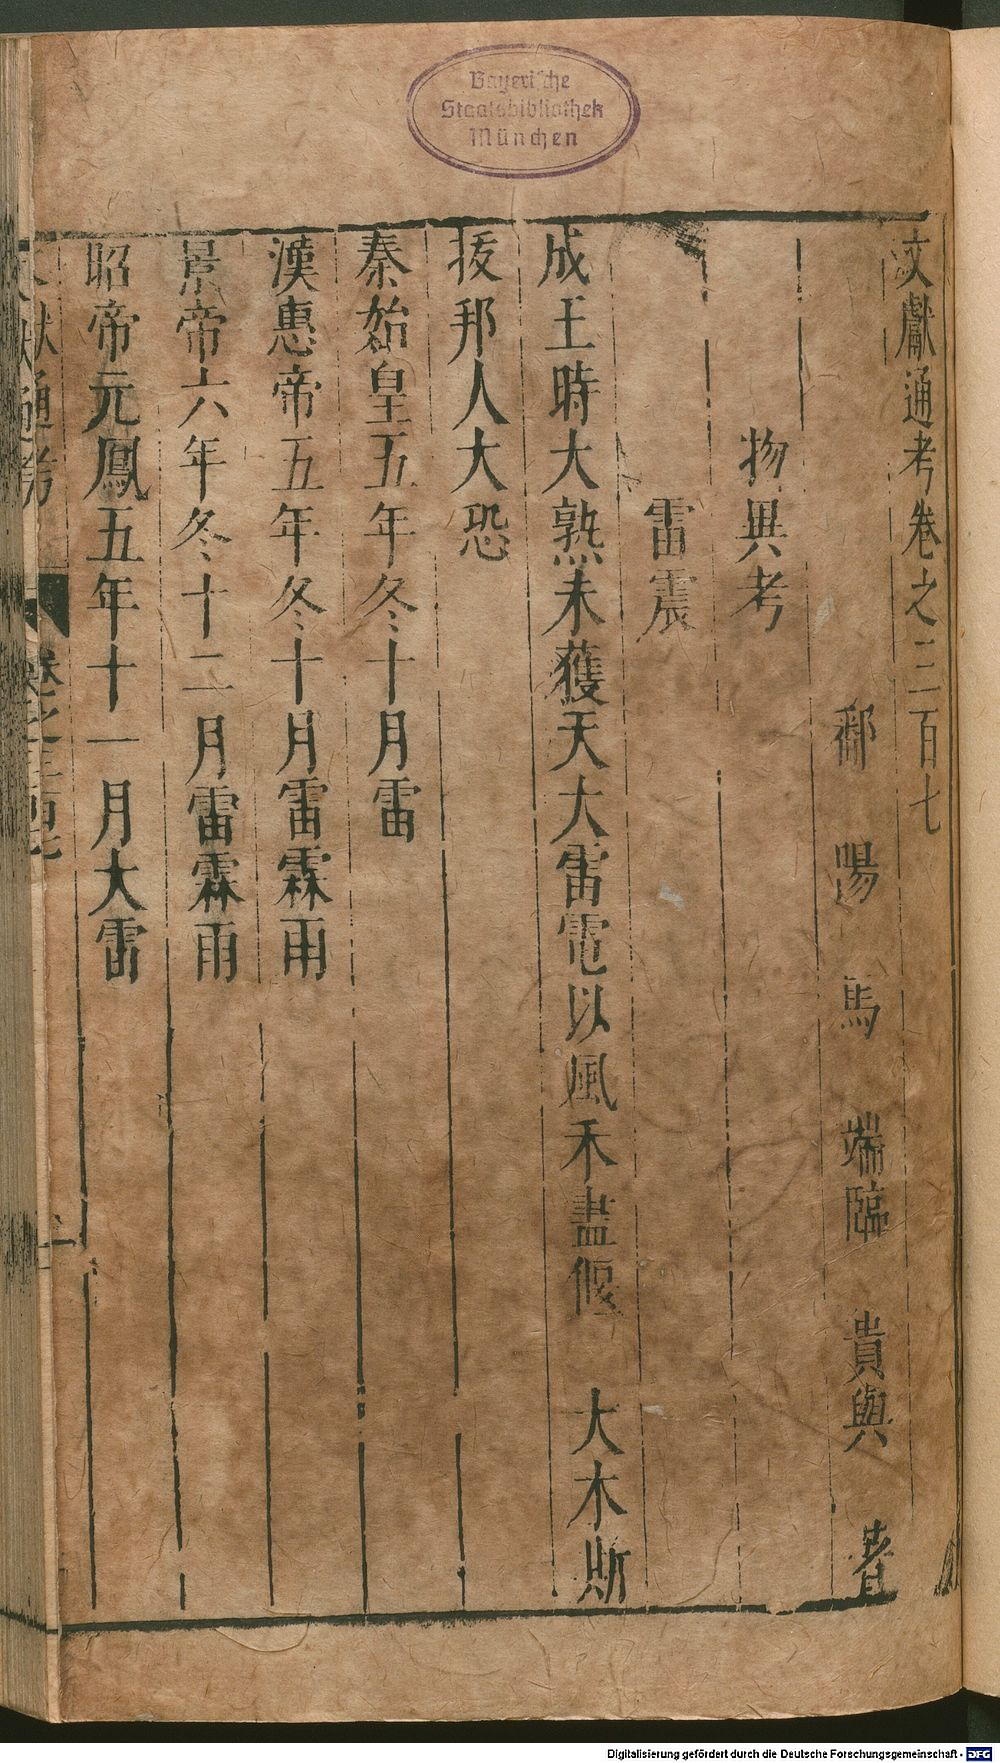 Bayerische
Staatsbibliothek
München
文獻通考卷之三百七
鄱陽馬端臨貴與著
物異考
雷震
成王時大熟未獲天大雷電以風禾盡偃 大木斯
拔邦人大恐
秦始皇五年冬十月雷
漢惠帝五年冬十月雷霖雨
景帝六年冬十二月雷霖雨
昭帝元鳳五年十一月大雷
文獻通考 卷之三百七 一
Digitalisierung gefördert durch die Deutsche Forschungsgemeinschaft - DFG